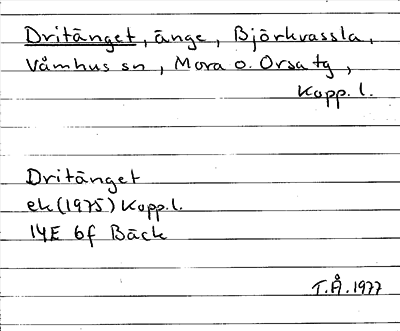 Dritänget, änge, Björkvassla,
Våmhus sn, Mora o. Orsa tg,
Kopp. l.
Dritänget
ek (1975) Kopp. l.
14E 6f Bäck
T.Å. 1977